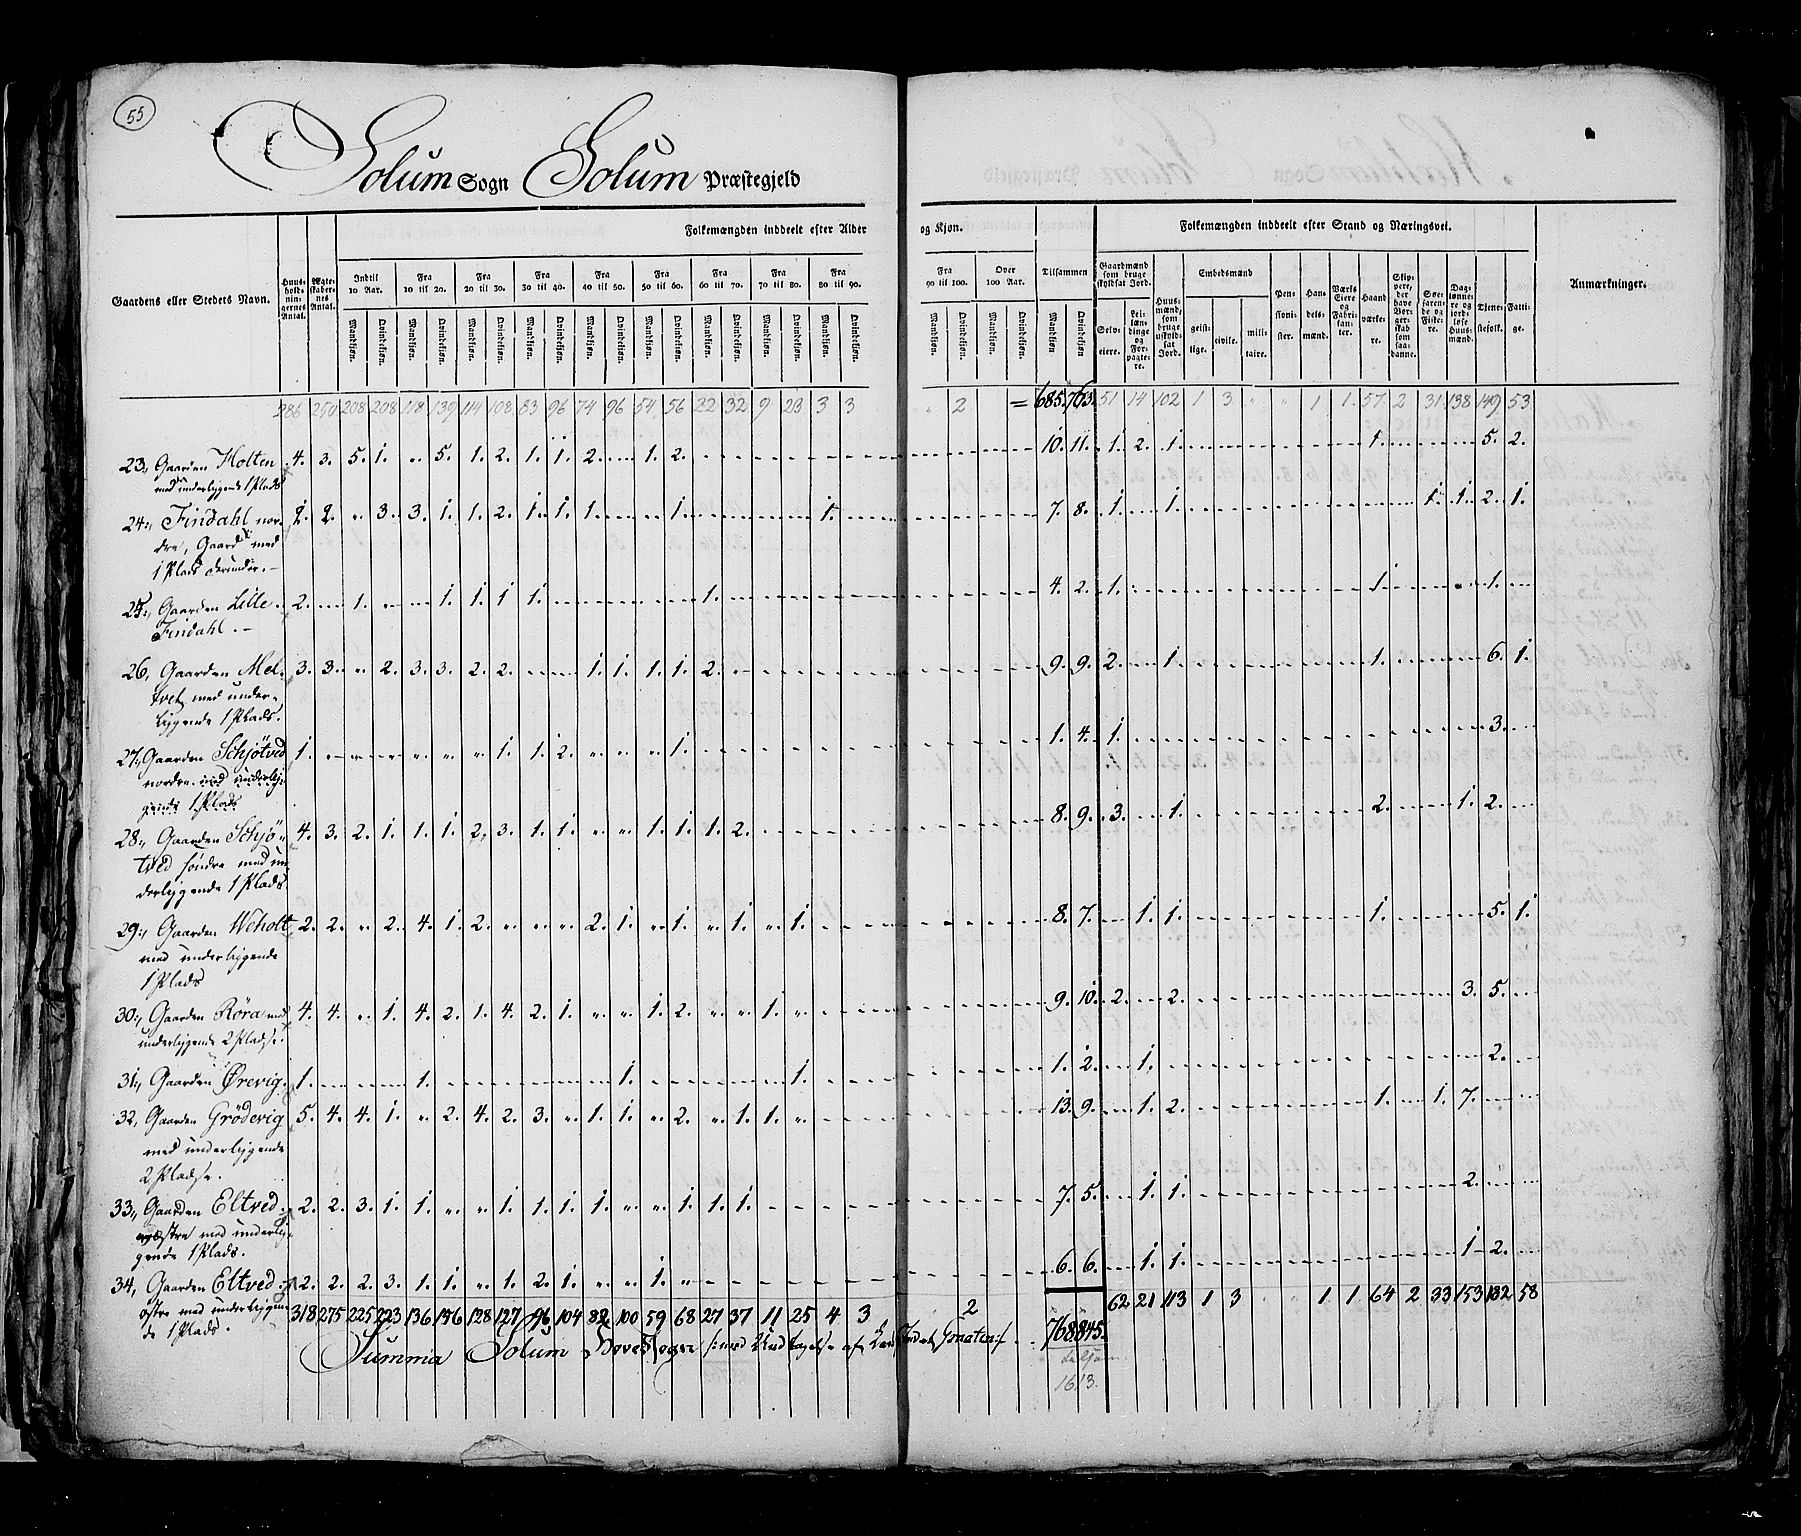 55
Solum Sogn Solum Præstegjeld
Folkemængden inddeelt efter Alder og Kjøn. Tilsammen Folkemængden inddeelt efter Stand og Næringsvei.
Gaardens eller Stedets Navn. Huusholdningernes Antal. Ægteskabernes Antal. Indtil 10 Aar. Fra 10 til 20. Fra 20 til 30. Fra 30 til 40. Fra 40 til 50. Fra 50 til 60. Fra 60 til 70. Fra 70 til 80. Fra 80 til 90. Fra 90 til 100. Over 100 Aar. Gaardmænd som bruge skyldsat Jord. Huusmænd, som bruge uskyldsat Jord. Embedsmænd Pensionister. Handelsmænd. Værks Eiere og Fabrikanter. Haandværkere. Skippere, der have Borgerskab som saadanne. Søefarende og Fiskere. Daglønnere og jordløse Huusmænd. Tjenestefolk. Fattige. Anmærkninger.
Mandkjøn. Qvindekjøn. Mandkjøn. Qvindekjøn. Mandkjøn. Qvindekjøn. Mandkjøn. Qvindekjøn. Mandkjøn. Qvindekjøn. Mandkjøn. Qvindekjøn. Mandkjøn. Qvindekjøn. Mandkjøn. Qvindekjøn. Mandkjøn. Qvindekjøn. Mandkjøn. Qvindekjøn. Mandkjøn. Qvindekjøn. Mandkjøn. Qvindekjøn. Selveiere. Leilændinge og Forpagtere. geistlige. civile. militaire.
286 250 208 208 118 139 114 108 83 96 74 96 54 56 22 32 9 23 3 3 2 = 685. 763. 51 14 102 1 3 " " 1 1. 57 2 31 138 149 53
23., Gaarden Holten 4. 3. 5. 1. " 5. 1. 2. 1. 1. 2. 1. 2. 10. 11. 1. 2. 1. 1. 5. 2.
med underliggende 1 Plads
24., Findahl nor- 2. 2. " 3. 3. 1. 1. 2. 1. 1. 1. 1. 1. 7. 8. 1. 1. 1. 1. 2. 1.
dre, Gaard med
1 Plads derunder.
25., Gaarden Lille 2. 1. 1. 1. 1 1. 1. 4. 2. 1. 1. 1.
Findahl.
26, Gaarden Mel- 3. 3. " 2. 3. 3. 2. 2. 1. 1. 1. 1. 2. 9. 9. 2. 1. 1. 6. 1.
tvet med under-
liggende 1 Plads.
27., Gaarden Schjøtved 1. 1. 1. 2. 1. 1. 4. 1. 3.
nordre med underlig-
gende 1 Plads
28., Gaarden Schjø- 4. 3. 2. 1. 1. 1. 2. 3. 1. 1. " " 1. 1. 1. 2. 8. 9. 3. 1. 2. 1. 2.
tved søndre med un-
derliggende 1 Plads.
29., Gaarden Weholt 2. 2. " 2. 4. 1. 2. " " " 2. 1. " 1. " 1. " 1. 8. 7. 1. 1. 1. 5. 1.
med underliggende
1 Plads
30., Gaarden Røra med 4. 4. " 1. 4. 2. 1. 4. 2. 1. " " 1. 2. " " 1. " 9. 10. 2. 2. 3. 5.
underliggende 2 Pladse.
31., Gaarden Ørevig. 1. 1. 1. 1. 1. 2. 1. 2.
32, Gaarden Grødevig 5. 4. 4. 1. " 2. 4. 2. 3. " 1. 1. " 2. " 1. 1. " 13. 9. 1. 2. 1. 1. 7.
med underliggende
2 Pladse.
33., Gaarden Eltved 2. 2. 3. 1. 1. " " 1. 1. 1. 1. " " 1. 1. 1. 7. 5. 1. 1. 2.
væstre med underlig-
gende 1 Plads.
34, Gaarden Eltved 2. 2. 2. 3. 1. 1. " 1. 2. 1. " " 1. " 6. 6. 1. 1. 1 2.
østre med underliggen-
de 1 Plads.
318 275 225 223 136 156 128 127 96 104 82 100 59 68 27 37 11 25 4 3 2 768. 845. 62 21 113 1 3 1 1 64 2 33 153 182 58
Summa Solum Hovedsogn
tilsam.
1613.